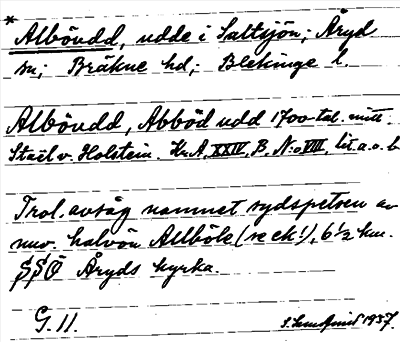 * Albövdd, udde i Saltsjön; Åryd
sn; Bräkne hd; Blekinge l.
Albövdd, Abböd udd 1700-tal. mitt.
Staël v. Holstein. Kr.A. XXIV, B, N:o VIII, lit. a. o. b
Trol. avsåg namnet sydspetsen av
nuv. halvön Allböle (se ek!), 6 1/2 km.
SSÖ Åryds kyrka.
G. 11.
1937.